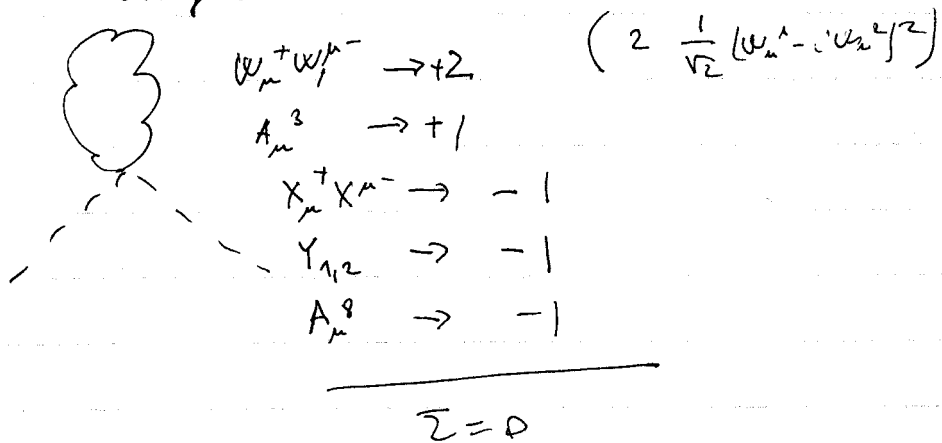 W_μ^+ W^{μ-} → +2 ( 2 1/√2 (W_μ^1 - i W_μ^2)^2 )
A_μ^3 → +1
X_μ^+ X^{μ-} → -1
Y_{1,2} → -1
A_μ^8 → -1
Σ = 0